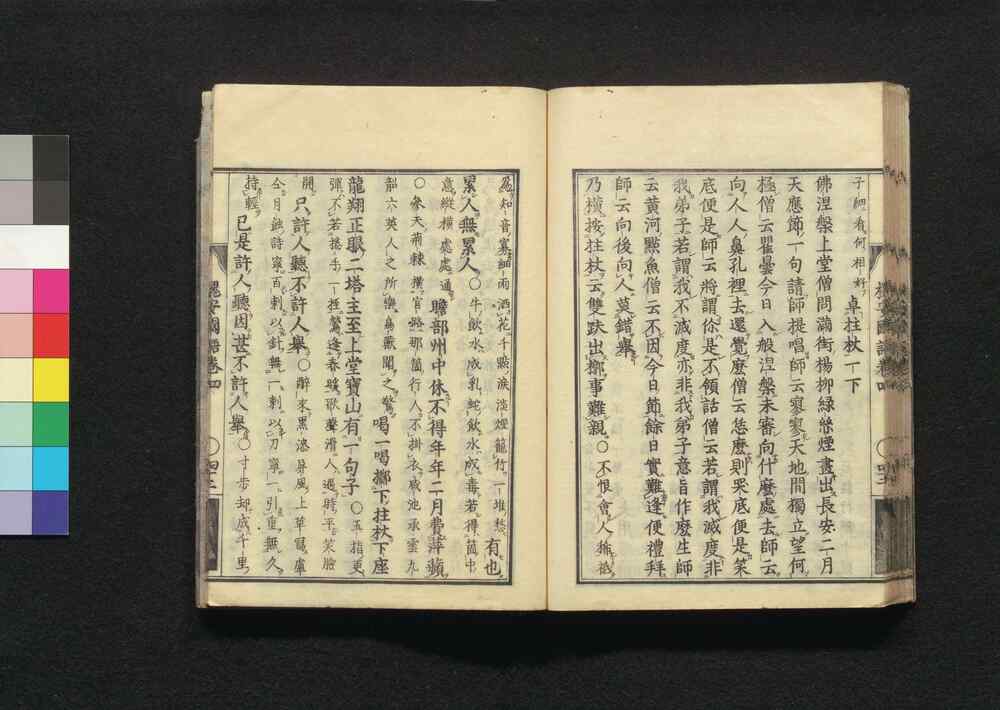 子細看何相好卓柱杖一下
佛涅槃上堂僧問滿街楊柳綠絲煙畫出長安二月
天應節一句請師提唱師云寥寥天地間獨立望何
極僧云瞿曇今日入般涅槃未審向什麼處去師云
向人人鼻孔裡去還覺麼僧云恁麼則哭底便是笑
底便是師云將謂你是不領話僧云若謂我滅度非
我弟子若謂我不滅度亦非我弟子意旨作麼生師
云黃河點魚僧云不因今日節餘日實難逢便禮拜
師云向後向人莫錯舉
乃橫按拄杖云雙趺出槨事難親○不恨會人
為知音寡細雨洒花千點淚淡煙籠竹一堆愁有也
累人無累人○牛飲水成乳蛇飲水成毒若得箇中
意縱橫處處通贍部州中休不得年年二月費蘋蘩
○參天荊棘攔官路那箇行人不掛衣咸池承雲九
韶六英人之所樂鳥獸聞之驚喝一喝擲下拄杖下座
龍翔正眼二塔主至上堂寶山有一句子○五指更
彈不若捲手一挃鶯逢春暖歌聲滑人遇時平笑臉
開只許人聽不許人舉○醉來黑漆屏風上草寫盧
仝月蝕詩寧百刺以針無一刺以刀寧一引重無久
持輕已是許人聽因甚不許人舉○寸步却成千里
槐安國語卷四
○四十二